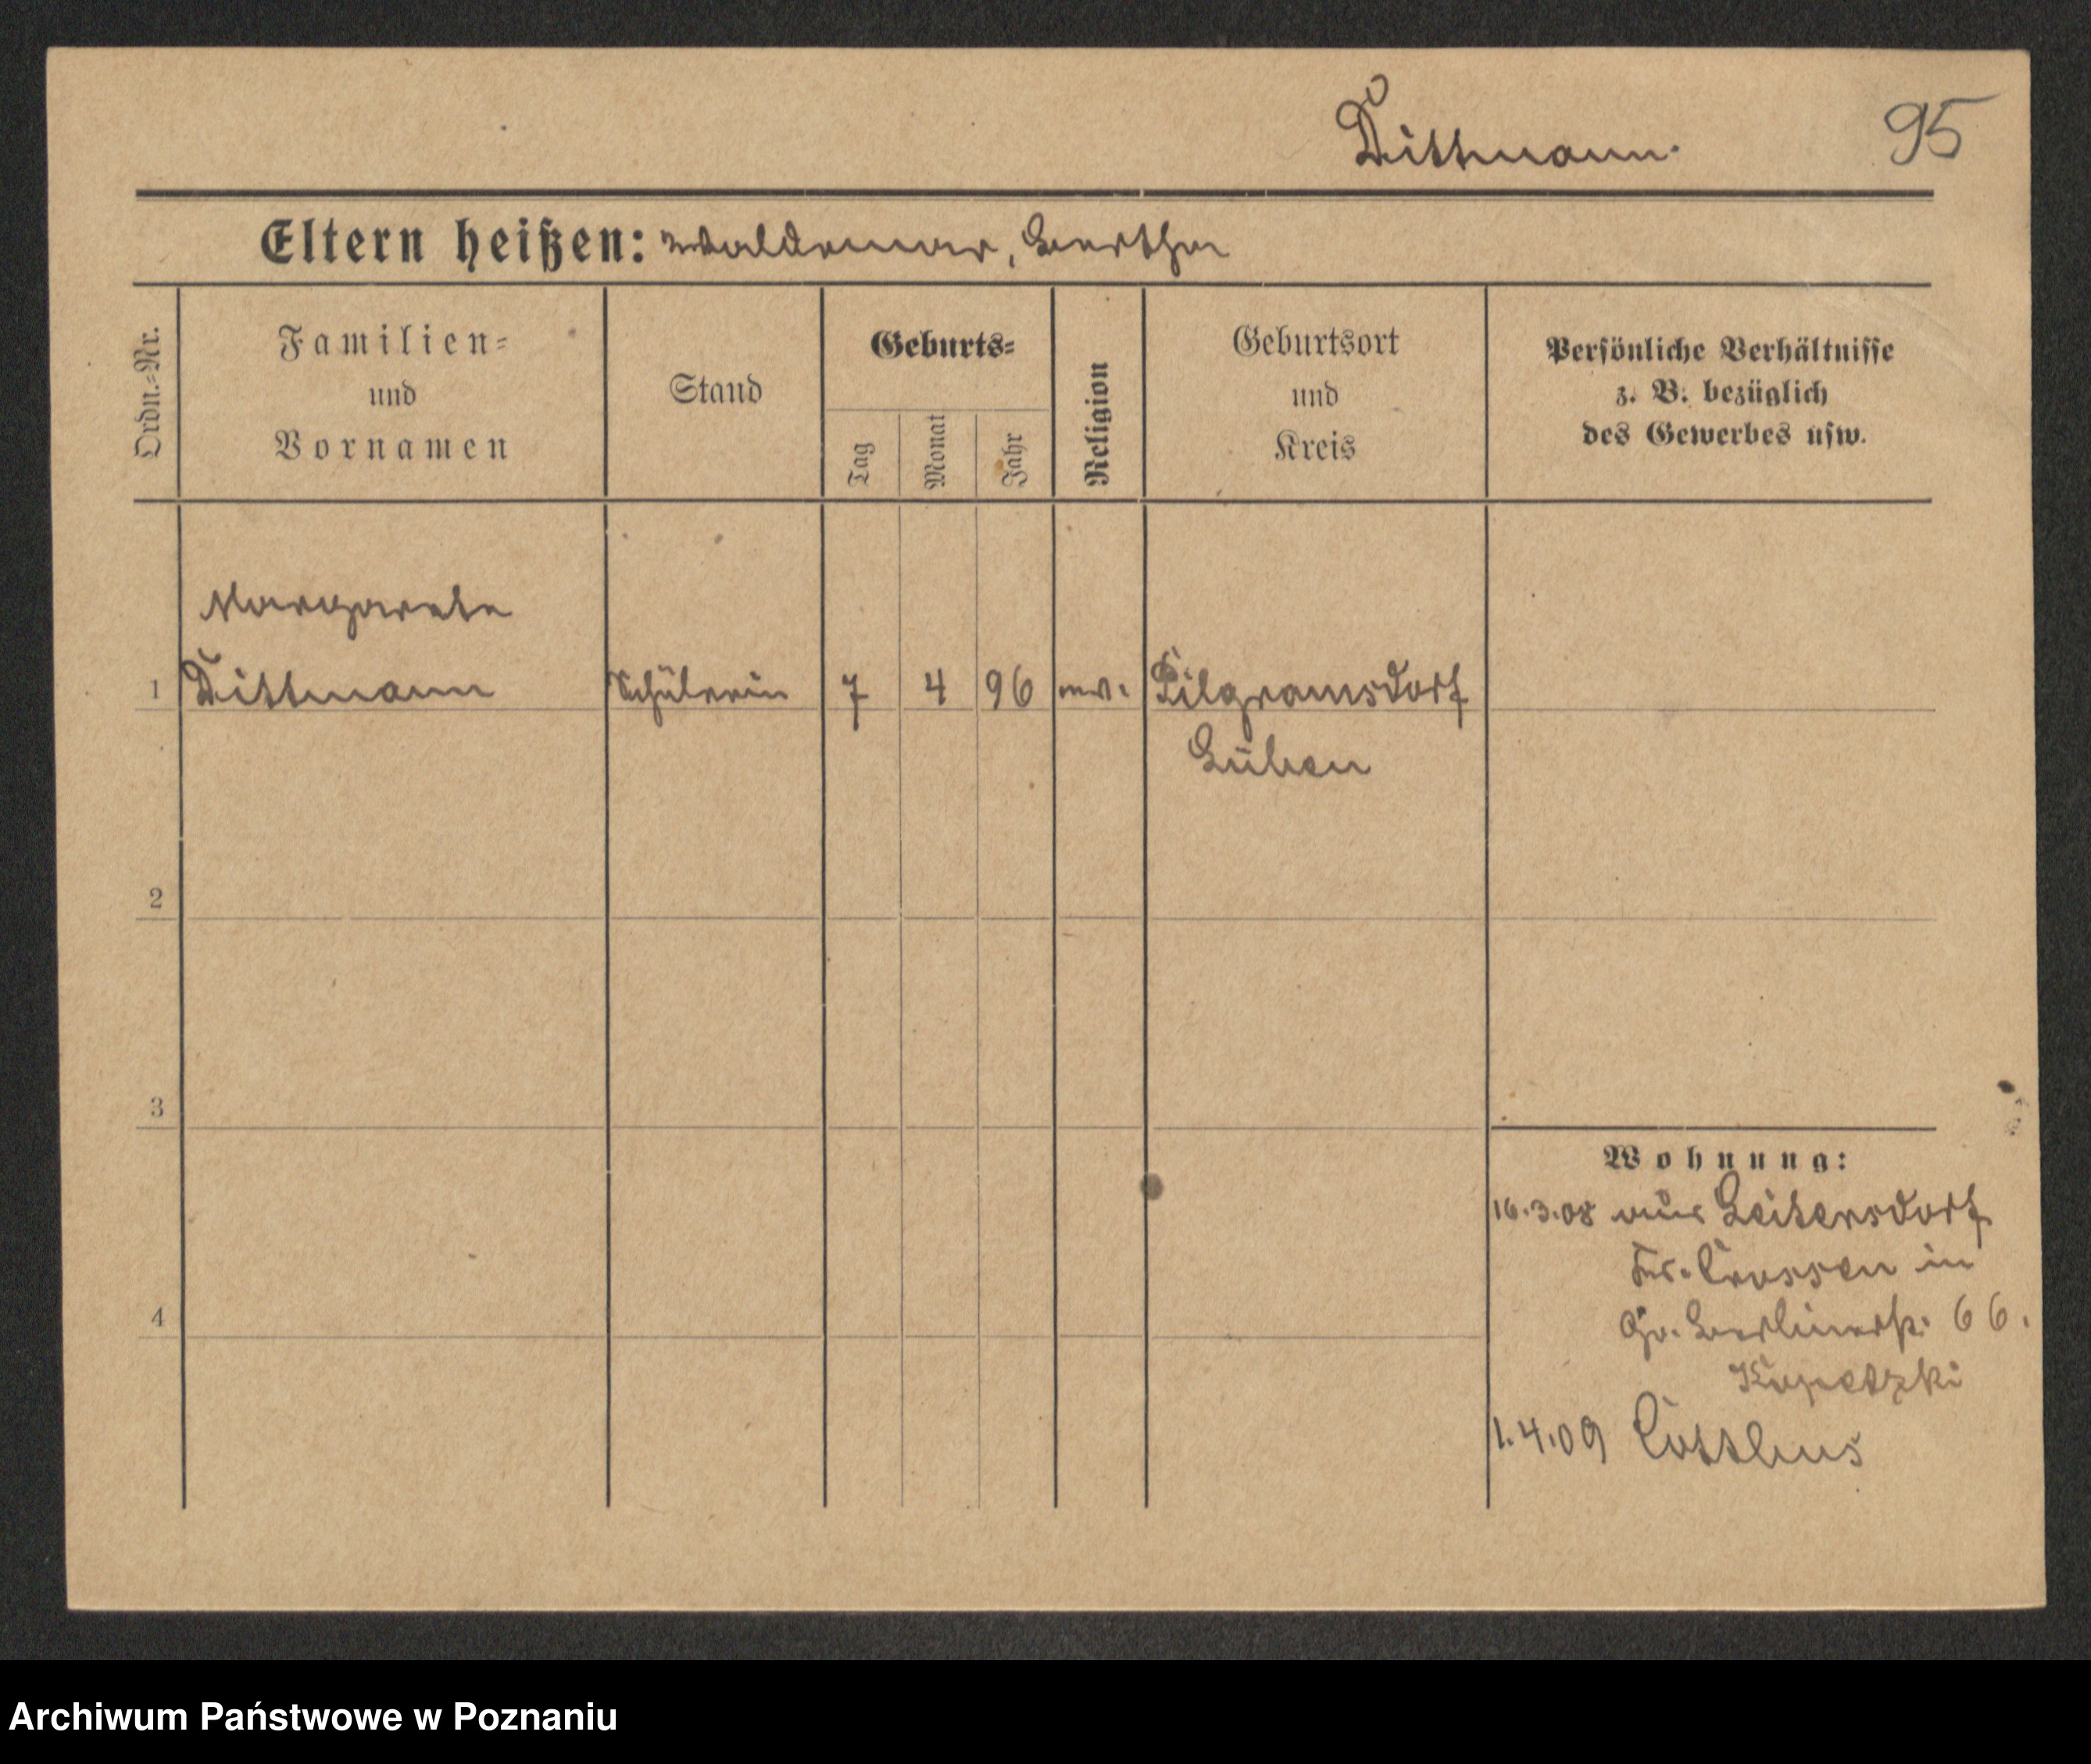 Dittmann.
95
Eltern heißen: Waldemar, Bertha
Ordn.-Nr.
Familien-
und
Vornamen
Stand
Geburts-
Tag
Monat
Jahr
Religion
Geburtsort
und
Kreis
Persönliche Verhältnisse
z. B. bezüglich
des Gewerbes usw.
Margarete
1 Dittmann Schülerin 7 4 96 ev. Pilgramsdorf
Lüben
2
3
4
Wohnung:
16.3.08 aus Leitersdorf
Kr. Crossen in
Gr. Berlinerstr. 66.
Kopetzki
1.4.09 Cottbus
Archiwum Państwowe w Poznaniu